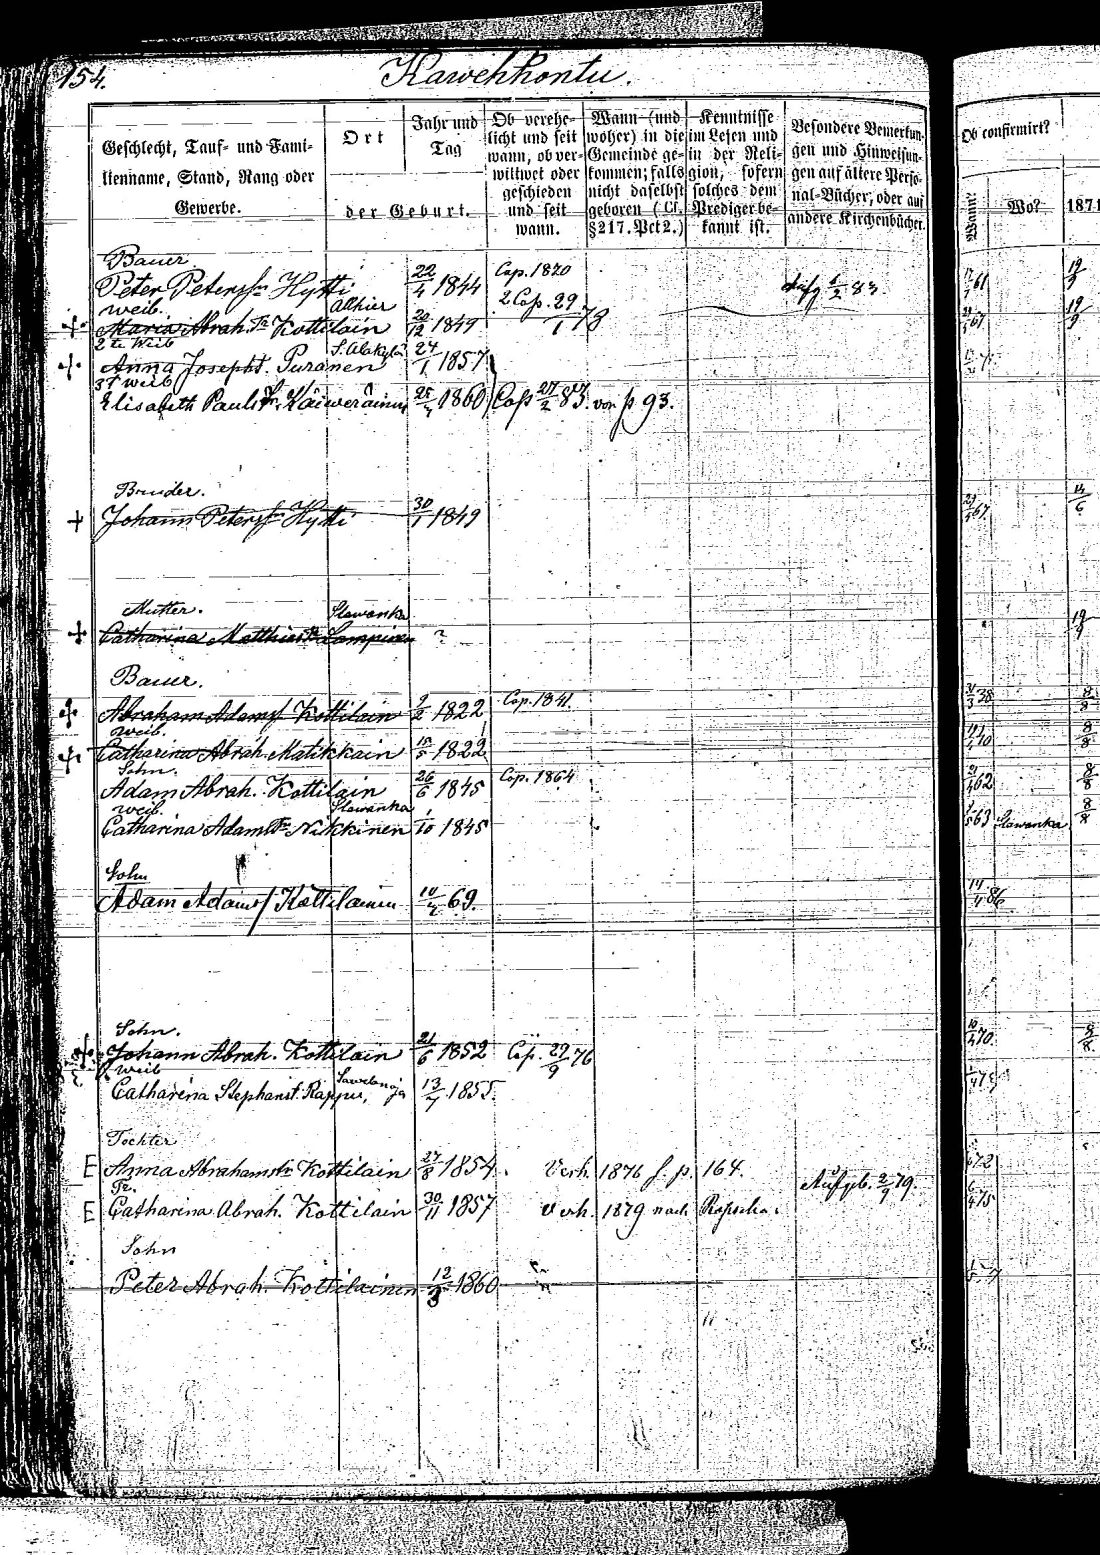 154.
Kawehkontu.
Geschlecht, Tauf- und Fami-
lienname, Stand, Rang oder
Gewerbe.
Ort
der Geburt.
Jahr und
Tag
Ob verehe-
licht und seit
wann, ob ver-
wittwet oder
geschieden
und seit
wann.
Wann (und
woher) in die
Gemeinde ge-
kommen; falls
nicht daselbst
geboren (Cf.
§ 217. Pct 2.)
Kenntnisse
im Lesen und
in der Reli-
gion, sofern
solches dem
Prediger be-
kannt ist.
Besondere Bemerkun-
gen und Hinweisun-
gen auf ältere Perso-
nal-Bücher, oder auf
andere Kirchenbücher.
Ob confirmirt?
Wann?
Wo?
1871
Bauer.
Peter Peterssn Hytti 22/4 1844 Cop. 1870 61 19/9
2 Cop. 29/1 78
Weib. Alhier
Maria Abrah. Tr Kottilain 20/12 1849 67 19/9
2te Weib
Anna Josepht. Puranen 24/1 1857
3t Weib
Elisabeth Paulstr. Käiweräinen 1860 Cop 27/2 83. von p 93.
Bruder.
Johann Peterssn Hytti 30/1 1849 67
Mutter. Slawanka
Catharina Matthiastr Lampinen ? 19/9
Bauer.
Abraham Adams Kottilain 9/2 1822 Cop. 1841. 38 8/8
Weib.
Catharina Abrah. Matikkain 15/5 1822 40 8/8
Sohn.
Adam Abrah. Kottilain 26/6 1845 Cop. 1864 62 8/8
Weib. Slawanka
Catharina Adamstr Nikkinen 1/10 1845 63 Slawanka 8/8
Sohn
Adam Adams Kottilainen 69. 86
Sohn.
Johann Abrah. Kottilain 21/6 1852 Cop. 29/9 76 70
Weib
Catharina Stephanst. Rappu, 13/7 1855.
Tochter
E Anna Abrahamstr Kottilain 27/8 1854. Verh. 1876 f. p. 164.
Tr.
E Catharina Abrah. Kottilain 30/11 1857 Verh. 1879 nach Rapscha. Aufgb. 2/9 79.
Sohn
Peter Abrah. Kottilainen 12/3 1860